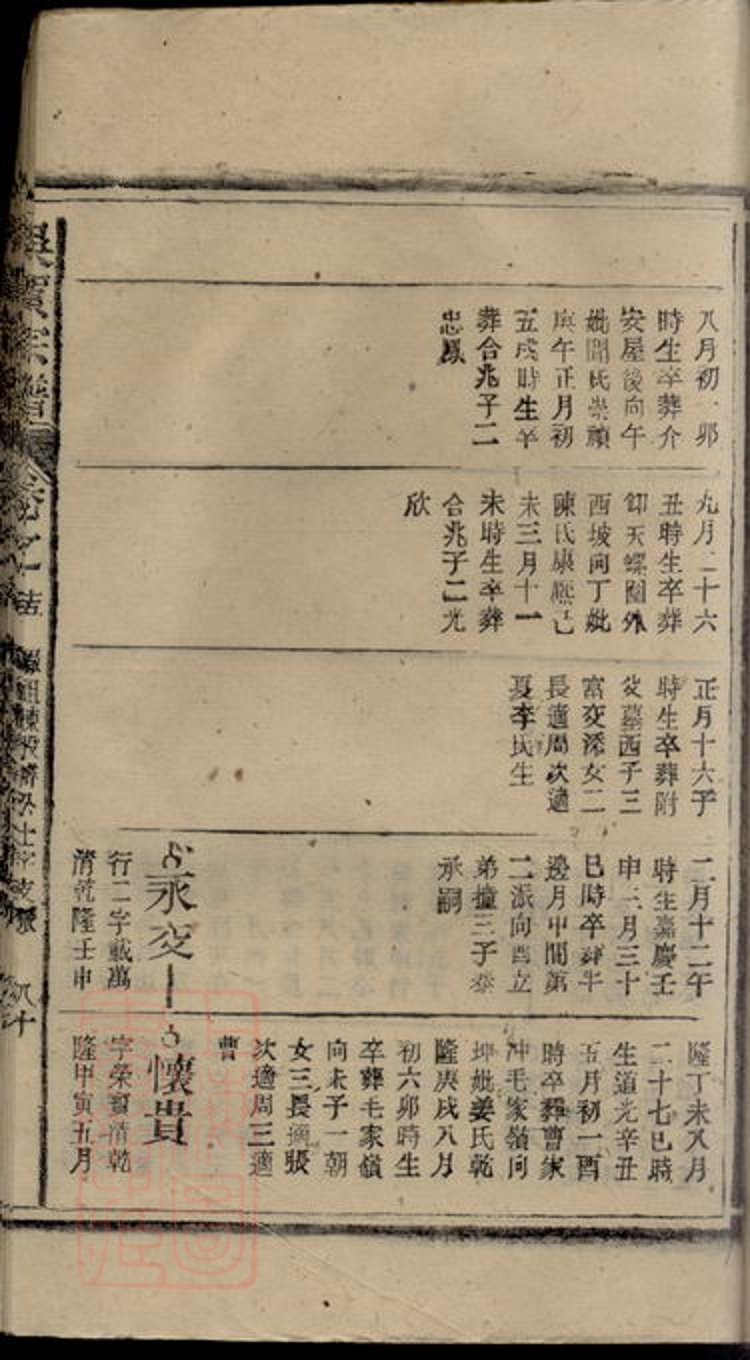 八月初一卯
時生卒葬介
安屋後向午
妣閻氏崇禎
庚午正月初
五戌時生卒
葬合兆子二
忠鳳
九月二十六
丑時生卒葬
仰天螺圍外
西坡向丁妣
陳氏康熙己
未三月十一
未時生卒葬
合兆子二光
欣
正月十六子
時生卒葬附
父墓西子三
富交深女二
長適周次適
夏李氏生
二月十二午
時生嘉慶壬
申三月三十
巳時卒葬牛
邊月中間第
二派向酉立
弟撞三子泰
承嗣
永交
行二字載萬
清乾隆壬申
隆丁未八月
二十七巳時
生道光辛丑
五月初一酉
時卒葬曹家
沖毛家嶺向
坤妣姜氏乾
隆庚戌八月
初六卯時生
卒葬毛家嶺
向未子一朝
女三長適張
次適周三適
曹
懷貴
字榮賢清乾
隆甲寅五月
宗譜
卷之
八十